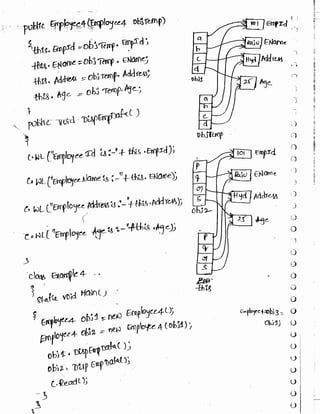 public Employee4 (Employee4 objTemp)
{
this.EmpId = objTemp.EmpId;
this.EName = objTemp.EName;
this.Address = objTemp.Address;
this.Age = objTemp.Age;
}
public void DispEmpData()
{
C.WL ("Employee Id is:-"+ this.EmpId);
C.WL ("Employee Name is:-"+ this.EName);
C.WL ("Employee Address is:-"+ this.Address);
C.WL ("Employee Age is:-"+ this.Age);
}
class Example4
{
static void Main()
{
Employee4 obj1 = new Employee4();
Employee4 obj2 = new Employee4 (obj1);
obj1.DispEmpData();
obj2.DispEmpData();
C.Read();
}
}
101 EmpId
a Raju EName
b
c Hyd Address
d
obj1 25 Age
a
b
c
d
objTemp
P 101 EmpId
q Raju EName
r
s Hyd Address
obj2
25 Age
P
q
r
s
this
Employee4 obj3 =
obj1)